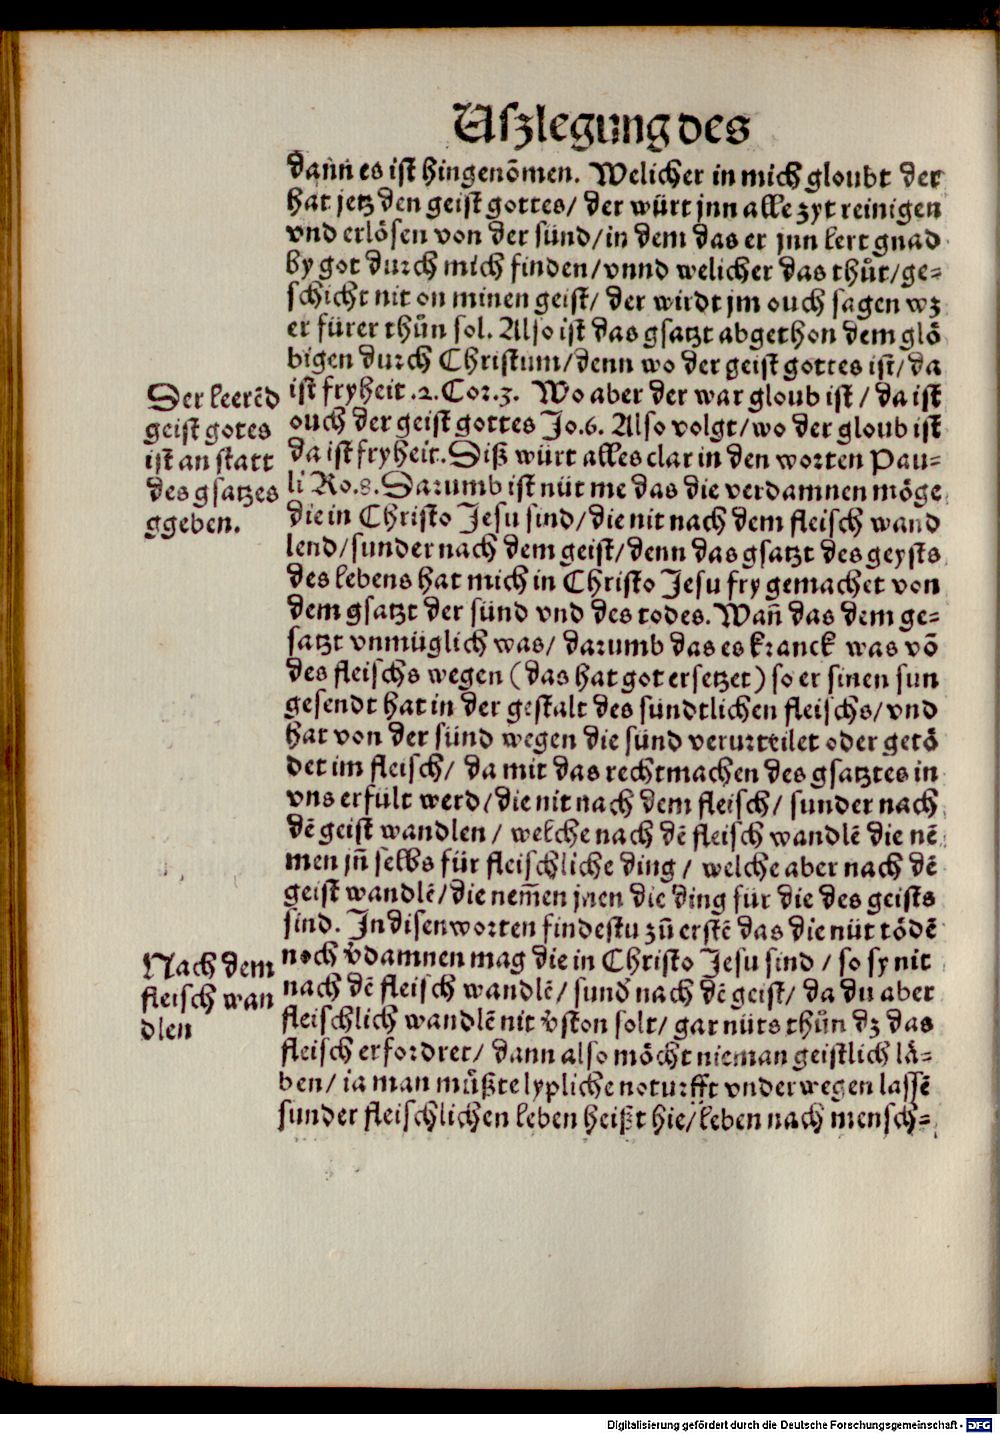 Uszlegung des
dann es ist hingenõmen. Welicher in mich gloubt der
hat jetz den geist gottes/ der würt jnn alle zyt reinigen
vnd erlösen von der sünd/in dem das er jnn lert gnad
by got durch mich finden/vnnd welicher das thůt/ge-
schicht nit on minen geist/ der wirdt jm ouch sagen wz
er fürer thůn sol. Also ist das gsatzt abgethon dem glö
bigen durch Christum/denn wo der geist gottes ist/da
ist fryheit .2. Cor.3. Wo aber der war gloub ist / da ist
ouch der geist gottes Jo.6. Also volgt/wo der gloub ist
da ist fryheit. Diß würt alles clar in den worten Pau-
li Ro.8. Darumb ist nüt me das die verdamnen möge
die in Christo Jesu sind/die nit nach dem fleisch wand
lend/sunder nach dem geist/denn das gsatzt des geysts
des lebens hat mich in Christo Jesu fry gemachet von
dem gsatzt der sünd vnd des todes. Wañ das dem ge-
satzt vnmüglich was/ darumb das es kranck was võ
des fleischs wegen (das hat got ersetzet) so er sinen sun
gesendt hat in der gestalt des sündtlichen fleischs/vnd
hat von der sünd wegen die sünd verurteilet oder getö
det im fleisch/ da mit das rechtmachen des gsatztes in
vns erfült werd/die nit nach dem fleisch/ sunder nach
dẽ geist wandlen / welche nach dẽ fleisch wandlẽ die nẽ
men jñ selbs für fleischliche ding / welche aber nach dẽ
geist wandlẽ/die nem̃en jnen die ding für die des geists
sind. In disen worten findestu zũ erstẽ das die nüt tödẽ
noch v̉damnen mag die in Christo Jesu sind / so sy nit
nach dẽ fleisch wandlẽ/ sund̉ nach dẽ geist/ da du aber
fleischlich wandlẽ nit v̉ston solt/ gar nüts thůn dz das
fleisch erfordret/ dann also möcht nieman geistlich lä-
ben/ ia man můßte lypliche noturfft vnderwegen lassẽ
sunder fleischlichen leben heißt hie/leben nach mensch-
Der leerẽd
geist gotes
ist an statt
des gsatzes
ggeben.
Nach dem
fleisch wan
dlen
Digitalisierung gefördert durch die Deutsche Forschungsgemeinschaft - DFG